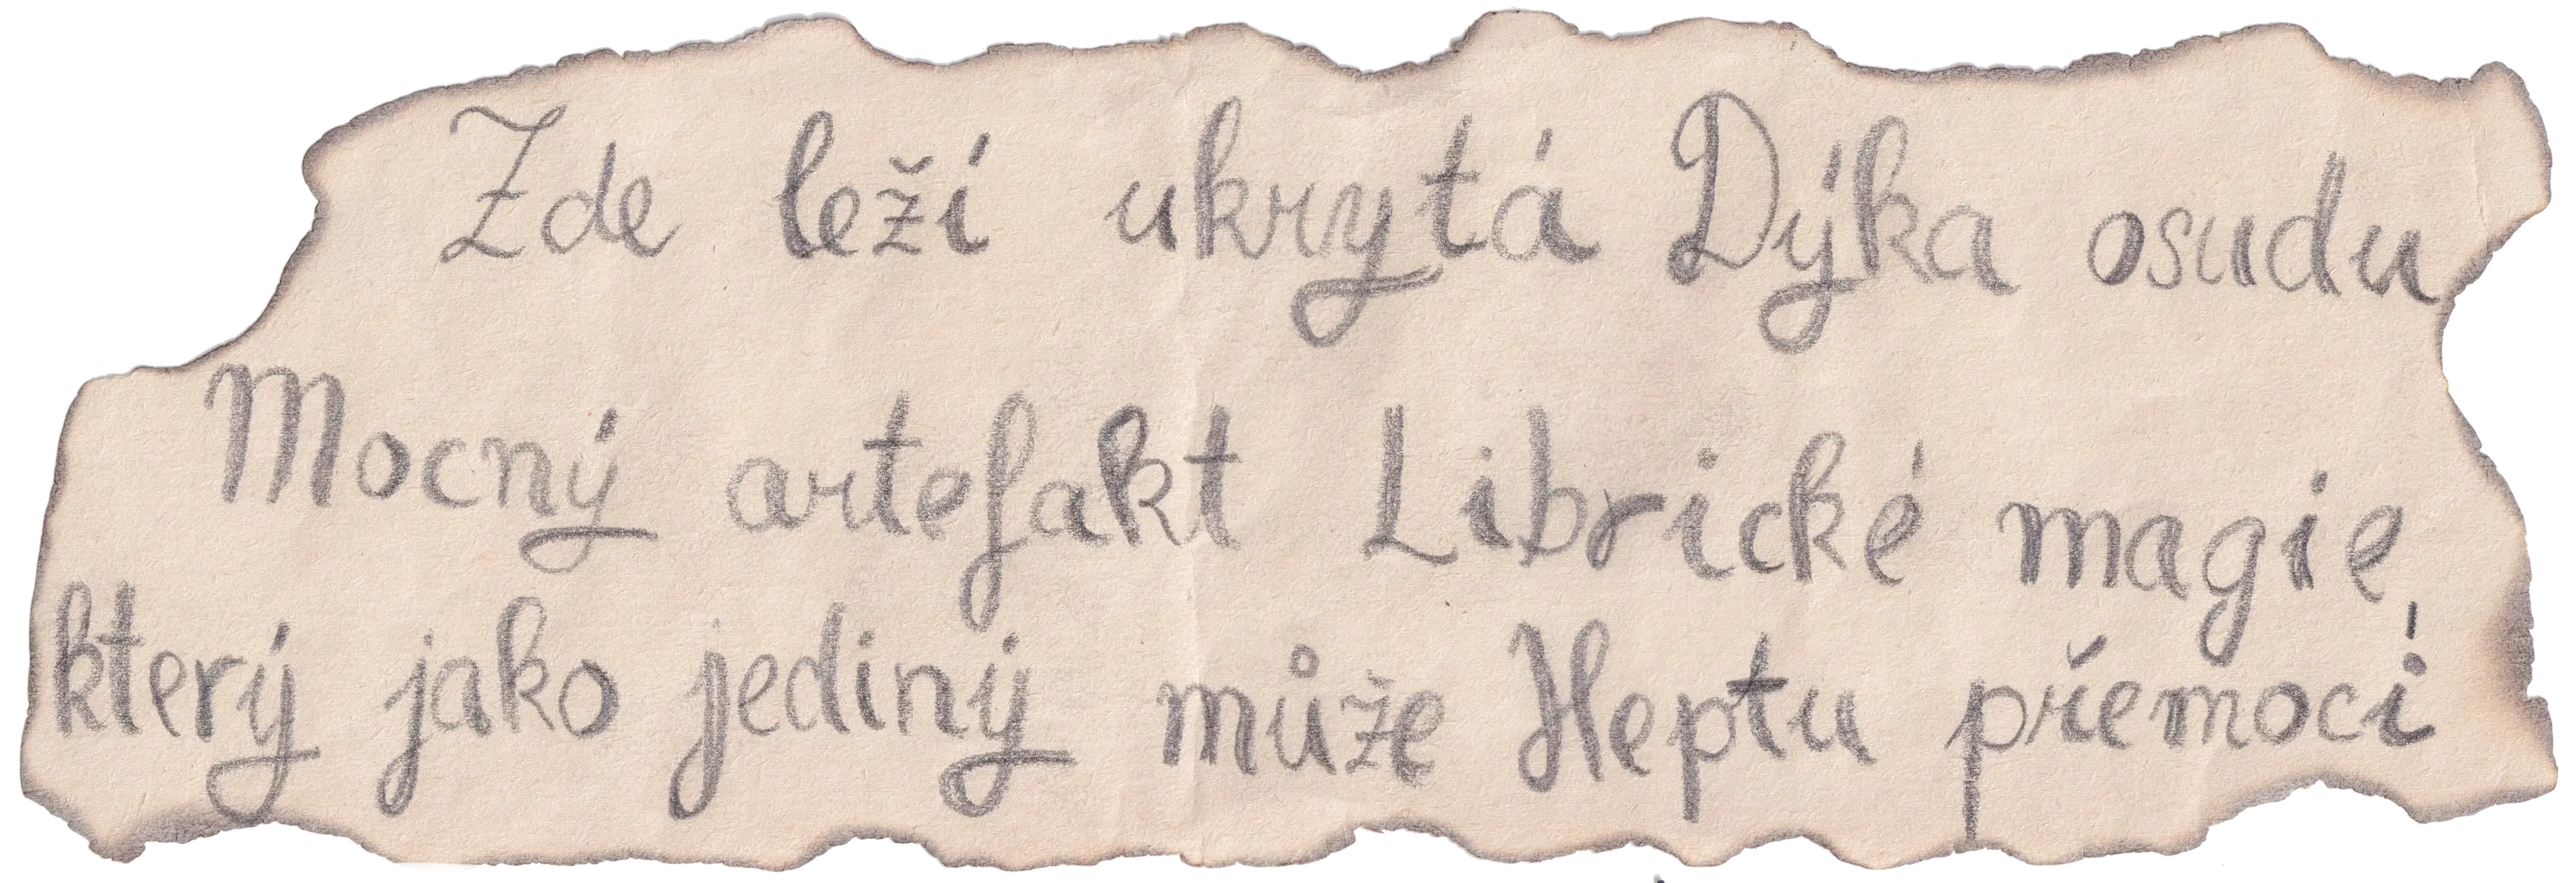 Zde leží ukrytá Dýka osudu
Mocný artefakt Librické magie
který jako jediný může Heptu přemoci